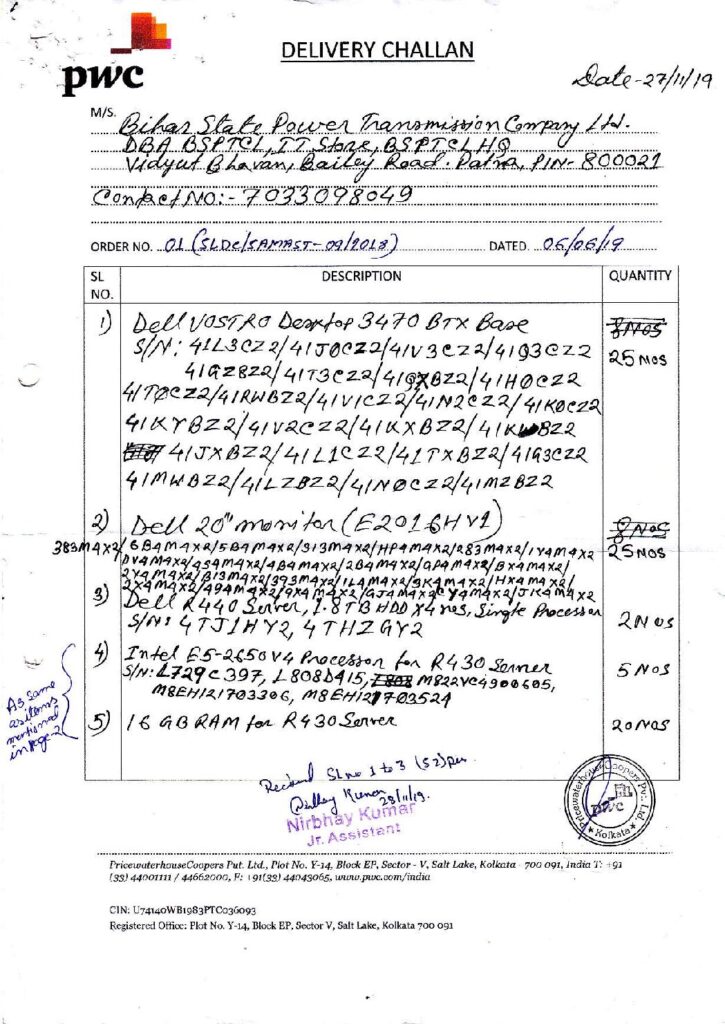 pwc
DELIVERY CHALLAN
Date-27/11/19
M/S. Bihar State Power Transmission Company Ltd.
DBA BSPTCL, IT Store, BSPTCL HQ
Vidyut Bhavan, Bailey Road. Patna, PIN- 800021
Contact NO:- 7033098049
ORDER NO. 01 (SLDC/SAMAST-09/2018) DATED. 06/06/19
SL NO. DESCRIPTION QUANTITY
1) Dell VOSTRO Desktop 3470 BTX Base 8 NOS
S/N: 41L3CZ2/41J0CZ2/41V3CZ2/41Q3CZ2 25 NOS
41GZBZ2/41T3CZ2/41QXBZ2/41H0CZ2
41T0CZ2/41RWBZ2/41V1CZ2/41N2CZ2/41K0CZ2
41KYBZ2/41V2CZ2/41KXBZ2/41KWBZ2
41JXBZ2/41L1CZ2/41TXBZ2/41G3CZ2
41MWBZ2/41LZBZ2/41N0CZ2/41MZBZ2
2) Dell 20" monitor (E2016HV1) 8 NOS
383M4X2/6B4M4X2/5B4M4X2/313M4X2/HP4M4X2/283M4X2/1Y4M4X2 25 NOS
DV4M4X2/4S4M4X2/4B4M4X2/2B4M4X2/GP4M4X2/BX4M4X2/
2Y4M4X2/B13M4X2/393M4X2/1L4M4X2/3K4M4X2/HX4M4X2/
2X4M4X2/494M4X2/9X4M4X2/GJ4M4X2/CY4M4X2/JK4M4X2
3) Dell R440 Server, 1.8TB HDD X4 nos, Single Processor
S/N: 4TJ1HY2, 4THZGY2 2 NOS
4) Intel E5-2650V4 Processor for R430 Server
S/N: L729C397, L808D415, M822VC4900605, 5 NOS
M8EH121703306, M8EH121703524
5) 16 GB RAM for R430 Server 20 NOS
As same
as items
mentioned
in page-2
Received SL no 1 to 3 (52) pcs
28/11/19.
Nirbhay Kumar
Jr. Assistant
PricewaterhouseCoopers Pvt. Ltd.
pwc
Kolkata
PricewaterhouseCoopers Pvt. Ltd., Plot No. Y-14, Block EP, Sector - V, Salt Lake, Kolkata - 700 091, India T: +91
(33) 44001111 / 44662000, F: +91(33) 44043065, www.pwc.com/india
CIN: U74140WB1983PTC036093
Registered Office: Plot No. Y-14, Block EP, Sector V, Salt Lake, Kolkata 700 091